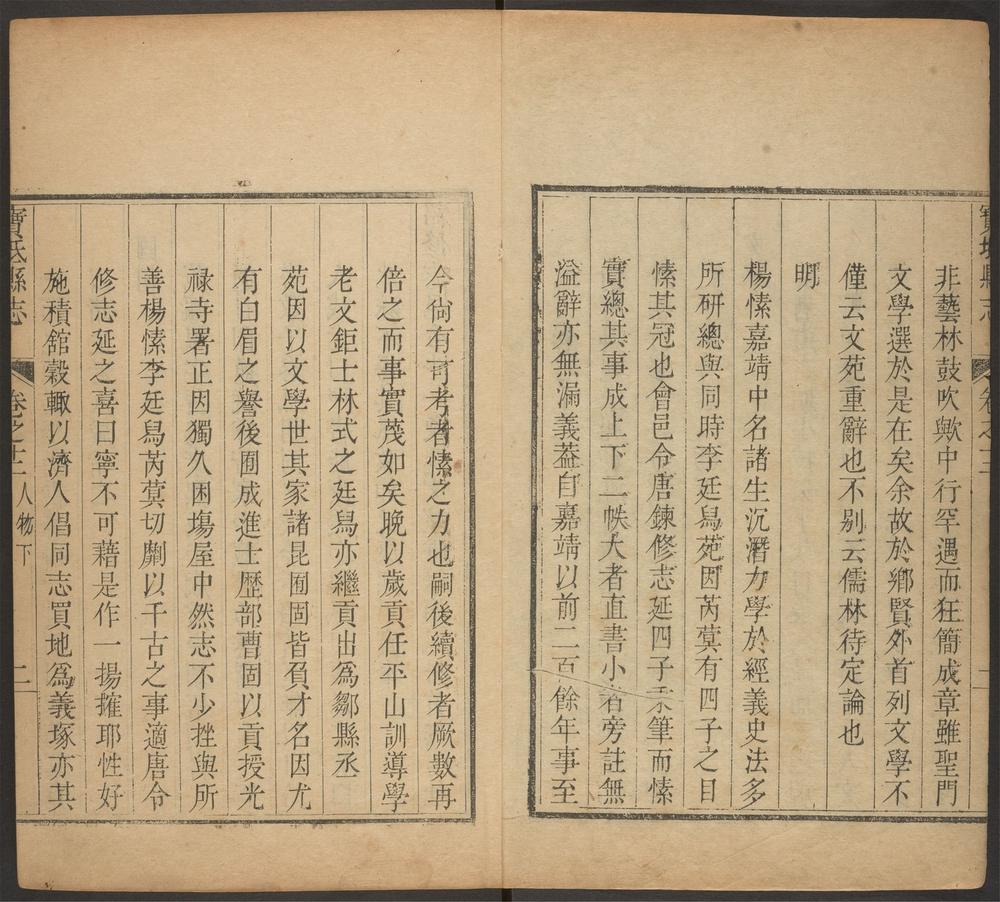 寶坻縣志
卷之十二
一
非藝林鼓吹歟中行罕遇而狂簡成章雖聖門
文學選於是在矣余故於鄉賢外首列文學不
僅云文苑重辭也不別云儒林待定論也
明
楊愫嘉靖中名諸生沉潛力學於經義史法多
所研總與同時李廷舄苑因芮蓂有四子之目
愫其冠也會邑令唐鍊修志延四子秉筆而愫
實總其事成上下二帙大者直書小者旁註無
溢辭亦無漏義葢自嘉靖以前二百餘年事至
今尙有可考者愫之力也嗣後續修者厥數再
倍之而事實茂如矣晚以歲貢任平山訓導學
老文鉅士林式之廷舄亦繼貢出爲鄒縣丞
苑因以文學世其家諸昆囿固皆負才名因尤
有白眉之譽後囿成進士歷部曹固以貢授光
祿寺署正因獨久困場屋中然志不少挫與所
善楊愫李廷舄芮蓂切劘以千古之事適唐令
修志延之喜曰寧不可藉是作一揚搉耶性好
施積舘穀輙以濟人倡同志買地爲義塚亦其
寶坻縣志
卷之十二 人物下
二